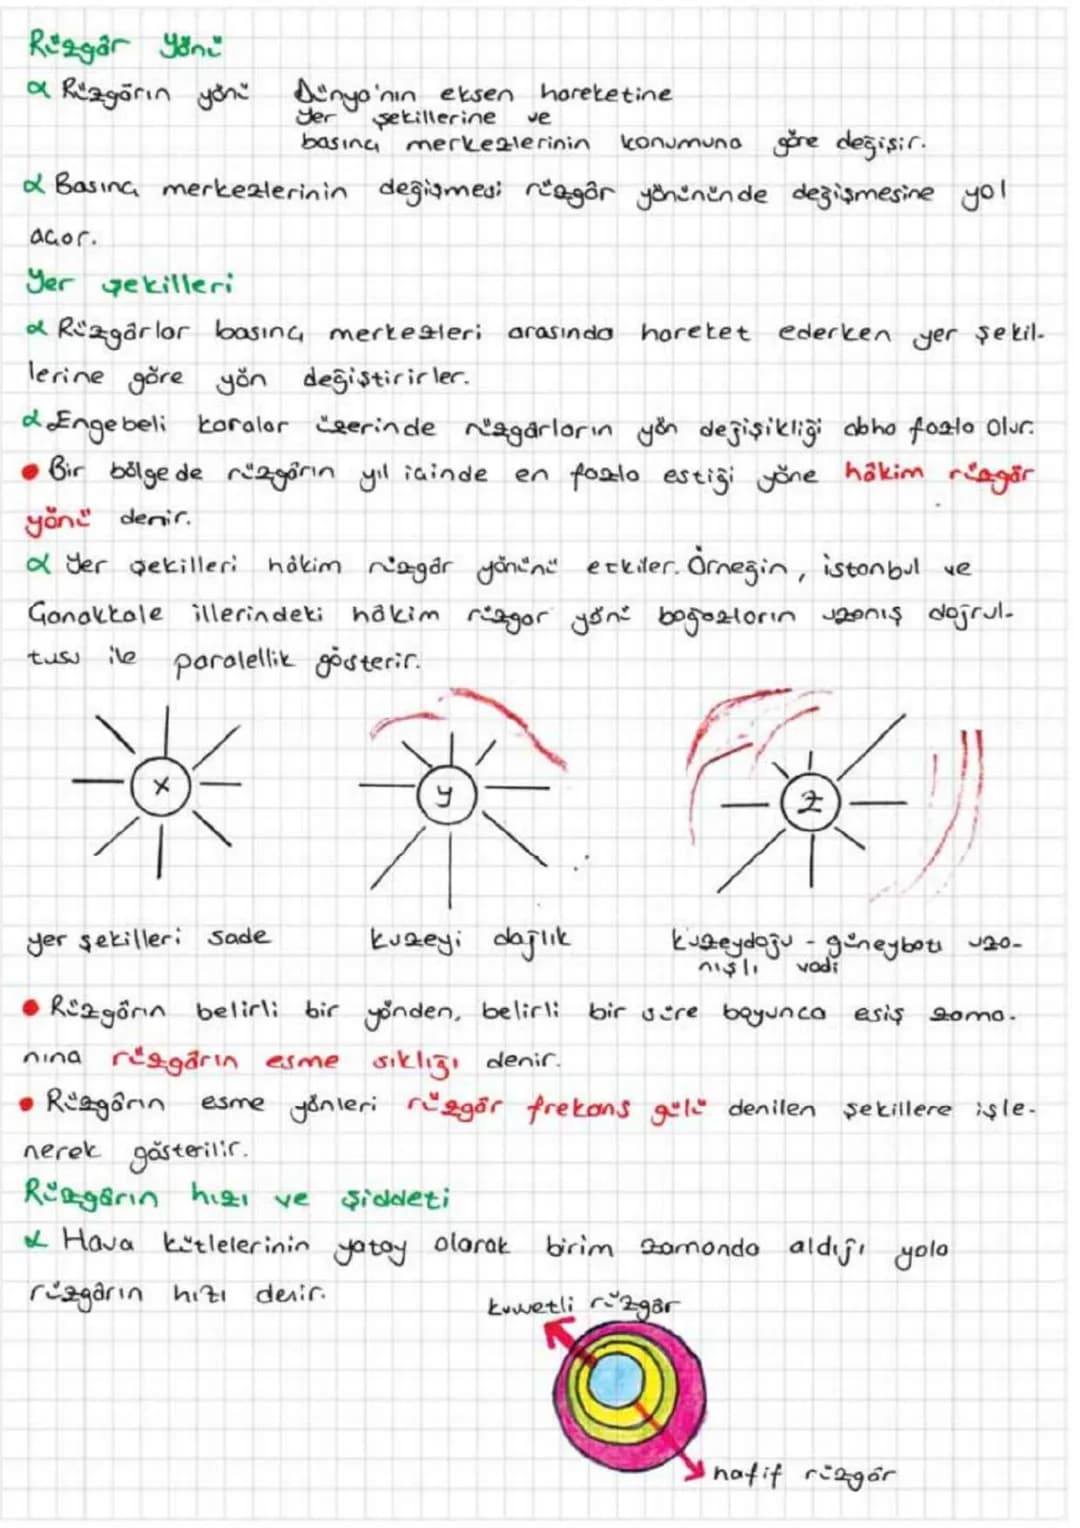 Rüzgâr yönü
α Rüzgârın yönü Dünya'nın eksen hareketine
yer şekillerine ve
basınç merkezlerinin konumuna göre değişir.
α Basınç merkezlerinin değişmesi rüzgâr yönününde değişmesine yol
açar.
Yer şekilleri
α Rüzgârlar basınç merkezleri arasında hareket ederken yer şekil-
lerine göre yön değiştirirler.
α Engebeli karalar üzerinde rüzgârların yön değişikliği daha fazla olur.
• Bir bölgede rüzgârın yıl içinde en fazla estiği yöne hâkim rüzgâr
yönü denir.
α Yer şekilleri hâkim rüzgâr yönünü etkiler. Örneğin, istanbul ve
Çanakkale illerindeki hâkim rüzgar yönü boğazların uzanış doğrul-
tusu ile paralellik gösterir.
x y z
yer şekilleri sade kuzeyi dağlık kuzeydoğu - güneybatı uza-
nışlı vadi
• Rüzgârın belirli bir yönden, belirli bir süre boyunca esiş zama-
nına rüzgârın esme sıklığı denir.
• Rüzgârın esme yönleri rüzgâr frekans gülü denilen şekillere işle-
nerek gösterilir.
Rüzgârın hızı ve şiddeti
α Hava kütlelerinin yatay olarak birim zamanda aldığı yola
rüzgârın hızı denir.
kuvvetli rüzgâr
hafif rüzgâr